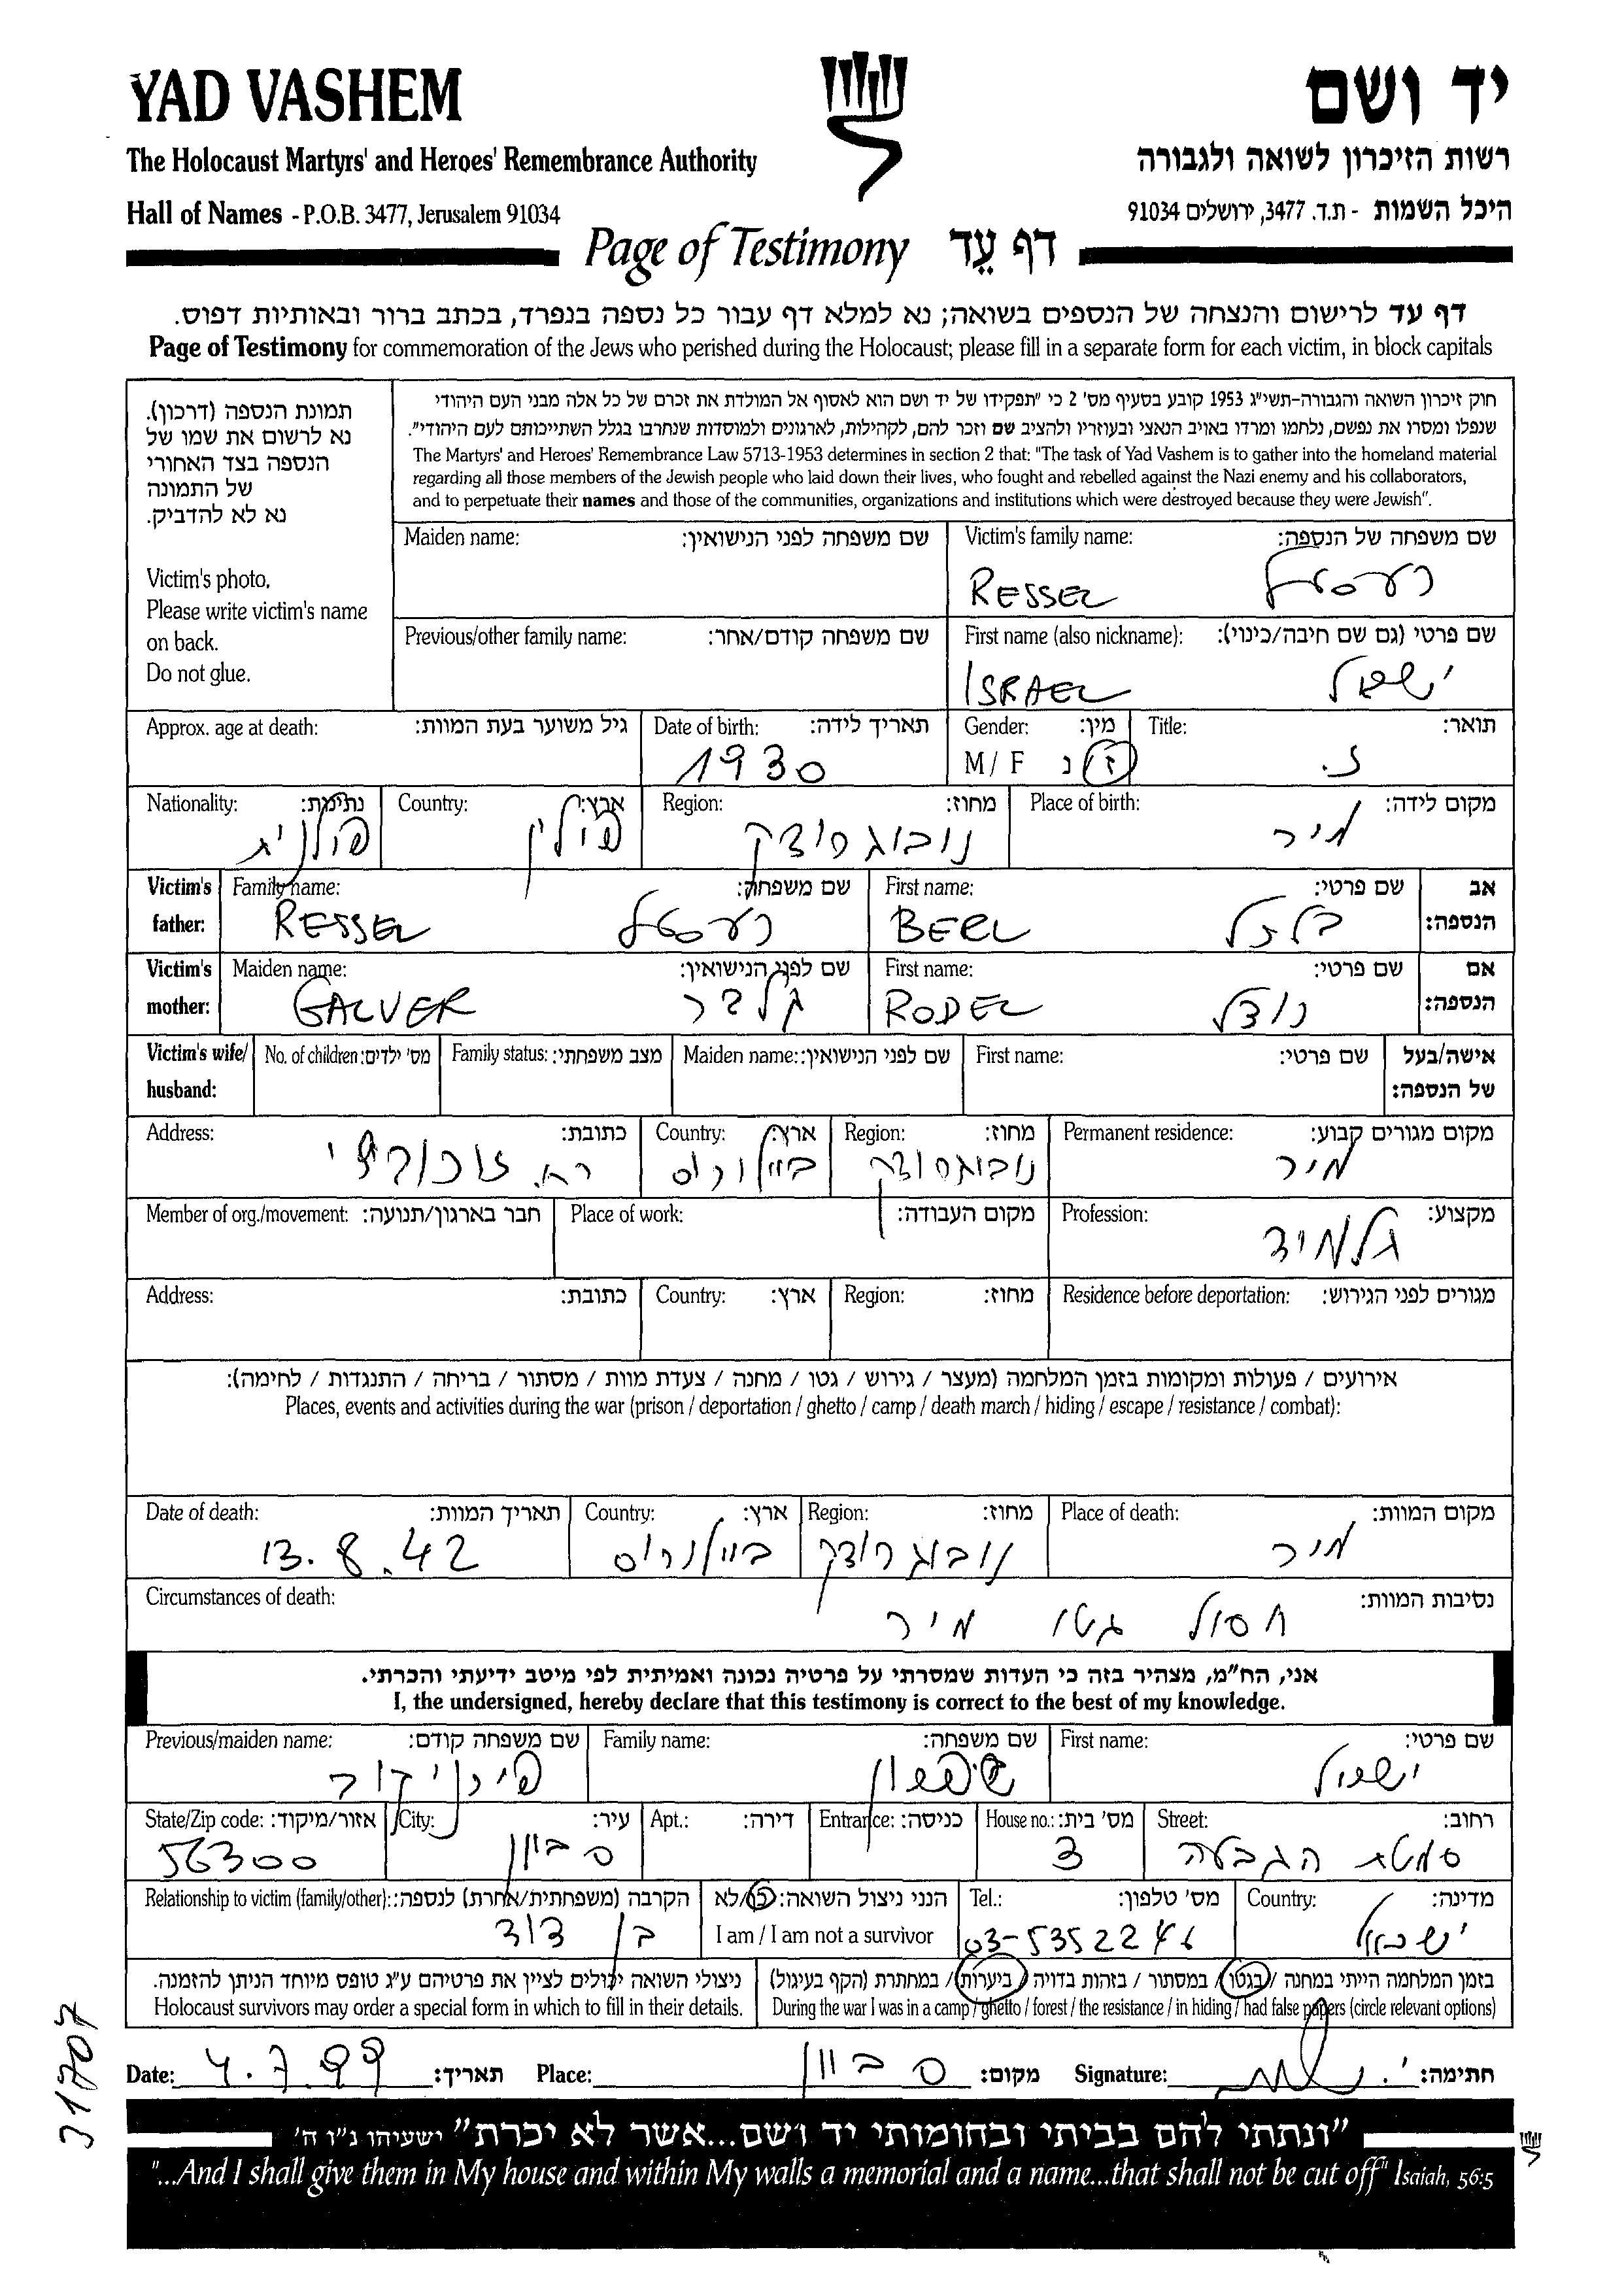 YAD VASHEM
יד ושם
The Holocaust Martyrs' and Heroes' Remembrance Authority
רשות הזיכרון לשואה ולגבורה
Hall of Names - P.O.B. 3477, Jerusalem 91034
היכל השמות - ת.ד. 3477, ירושלים 91034
Page of Testimony דף עֵד
דף עד לרישום והנצחה של הנספים בשואה; נא למלא דף עבור כל נספה בנפרד, בכתב ברור ובאותיות דפוס.
Page of Testimony for commemoration of the Jews who perished during the Holocaust; please fill in a separate form for each victim, in block capitals
תמונת הנספה (דרכון).
נא לרשום את שמו של
הנספה בצד האחורי
של התמונה
נא לא להדביק.
Victim's photo.
Please write victim's name
on back.
Do not glue.
חוק זיכרון השואה והגבורה-תשי"ג 1953 קובע בסעיף מס' 2 כי "תפקידו של יד ושם הוא לאסוף אל המולדת את זכרם של כל אלה מבני העם היהודי
שנפלו ומסרו את נפשם, נלחמו ומרדו באויב הנאצי ובעוזריו ולהציב שם וזכר להם, לקהילות, לארגונים ולמוסדות שנחרבו בגלל השתייכותם לעם היהודי".
The Martyrs' and Heroes' Remembrance Law 5713-1953 determines in section 2 that: "The task of Yad Vashem is to gather into the homeland material
regarding all those members of the Jewish people who laid down their lives, who fought and rebelled against the Nazi enemy and his collaborators,
and to perpetuate their names and those of the communities, organizations and institutions which were destroyed because they were Jewish".
Maiden name: שם משפחה לפני הנישואין:
Victim's family name: שם משפחה של הנספה:
RESSEL רעסטל
Previous/other family name: שם משפחה קודם/אחר:
First name (also nickname): שם פרטי (גם שם חיבה/כינוי):
ISRAEL ישראל
Approx. age at death: גיל משוער בעת המוות:
Date of birth: תאריך לידה:
1930
Gender: מין:
M / F ז/נ
Title: תואר:
ז.
Nationality: נתינות:
פולנית
Country: ארץ:
פולין
Region: מחוז:
נובוגרודק
Place of birth: מקום לידה:
מיר
Victim's father: אב הנספה:
Family name: שם משפחה:
RESSEL רעסטל
First name: שם פרטי:
BERL ברל
Victim's mother: אם הנספה:
Maiden name: שם לפני הנישואין:
GALVER גלבר
First name: שם פרטי:
RODEL רודל
Victim's wife/ husband: אישה/בעל של הנספה:
No. of children: מס' ילדים:
Family status: מצב משפחתי:
Maiden name: שם לפני הנישואין:
First name: שם פרטי:
Address: כתובת:
Country: ארץ:
ביילורוס
Region: מחוז:
נובוגרודק
Permanent residence: מקום מגורים קבוע:
מיר
Member of org./movement: חבר בארגון/תנועה:
Place of work: מקום העבודה:
Profession: מקצוע:
תלמיד
Address: כתובת:
Country: ארץ:
Region: מחוז:
Residence before deportation: מגורים לפני הגירוש:
אירועים / פעולות ומקומות בזמן המלחמה (מעצר / גירוש / גטו / מחנה / צעדת מוות / מסתור / בריחה / התנגדות / לחימה):
Places, events and activities during the war (prison / deportation / ghetto / camp / death march / hiding / escape / resistance / combat):
Date of death: תאריך המוות:
13.8.42
Country: ארץ:
ביילורוס
Region: מחוז:
נובוגרודק
Place of death: מקום המוות:
מיר
Circumstances of death: נסיבות המוות:
חסול גטו מיר
אני, הח"מ, מצהיר בזה כי העדות שמסרתי על פרטיה נכונה ואמיתית לפי מיטב ידיעתי והכרתי.
I, the undersigned, hereby declare that this testimony is correct to the best of my knowledge.
Previous/maiden name: שם משפחה קודם:
Family name: שם משפחה:
שיפרון
First name: שם פרטי:
ישראל
State/Zip code: אזור/מיקוד:
56300
City: עיר:
סביון
Apt.: דירה:
Entrance: כניסה:
House no.: מס' בית:
3
Street: רחוב:
סמטת הגבעה
Relationship to victim (family/other): הקרבה (משפחתית/אחרת) לנספה:
בן דוד
הנני ניצול השואה: כן/לא
I am / I am not a survivor
Tel.: מס' טלפון:
03-5352246
Country: מדינה:
ישראל
ניצולי השואה יכולים לציין את פרטיהם ע"ג טופס מיוחד הניתן להזמנה.
Holocaust survivors may order a special form in which to fill in their details.
בזמן המלחמה הייתי במחנה / בגטו / במסתור / בזהות בדויה / ביערות / במחתרת (הקף בעיגול)
During the war I was in a camp / ghetto / forest / the resistance / in hiding / had false papers (circle relevant options)
Date: 4.7.99 תאריך:
Place: סביון מקום:
Signature: חתימה:
"ונתתי להם בביתי ובחומותי יד ושם...אשר לא יכרת" ישעיהו נ"ו ה'
"...And I shall give them in My house and within My walls a memorial and a name...that shall not be cut off" Isaiah, 56:5
31707